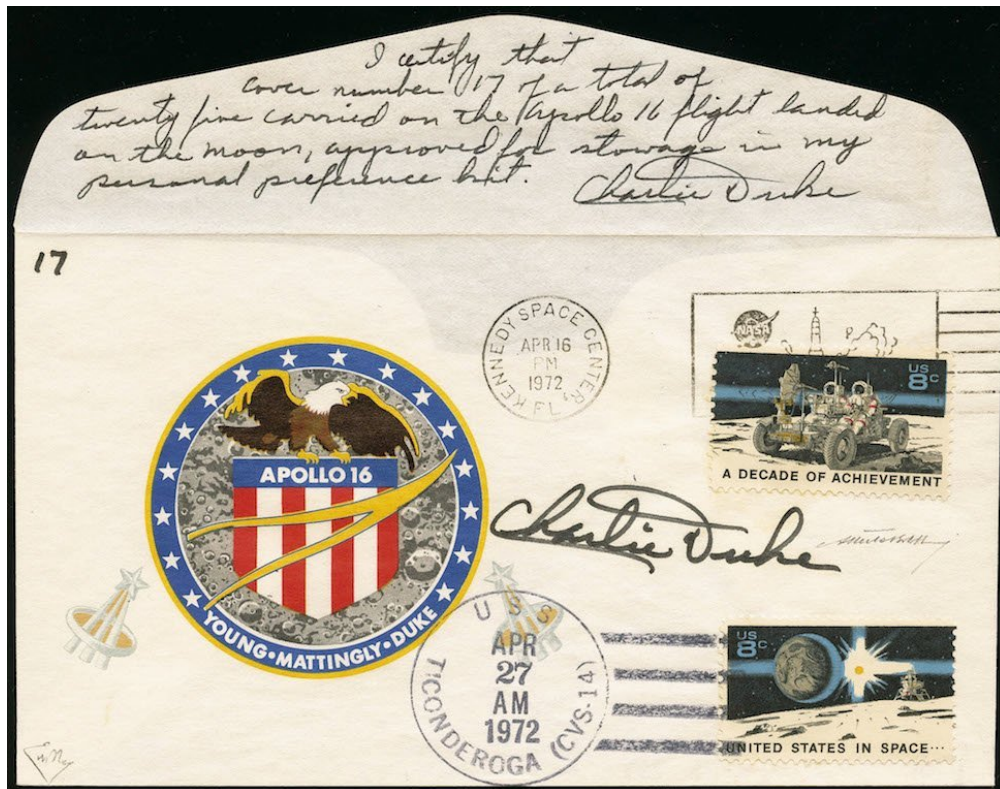 I certify that
cover number 17 of a total of
twenty five carried on the Apollo 16 flight landed
on the moon, approved for stowage in my
personal preference kit. Charlie Duke
17
KENNEDY SPACE CENTER, FL
APR 16
PM
1972
NASA
US
8c
A DECADE OF ACHIEVEMENT
APOLLO 16
YOUNG•MATTINGLY•DUKE
Charlie Duke
USS
TICONDEROGA (CVS-14)
APR
27
AM
1972
US
8c
UNITED STATES IN SPACE...